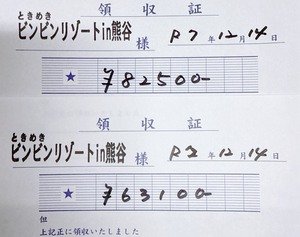 領収証
ときめき
ピンピンリゾートin熊谷 様 R7年12月14日
★ ¥82500-
領収証
ときめき
ピンピンリゾートin熊谷 様 R7年12月14日
★ ¥63100-
但
上記正に領収いたしました